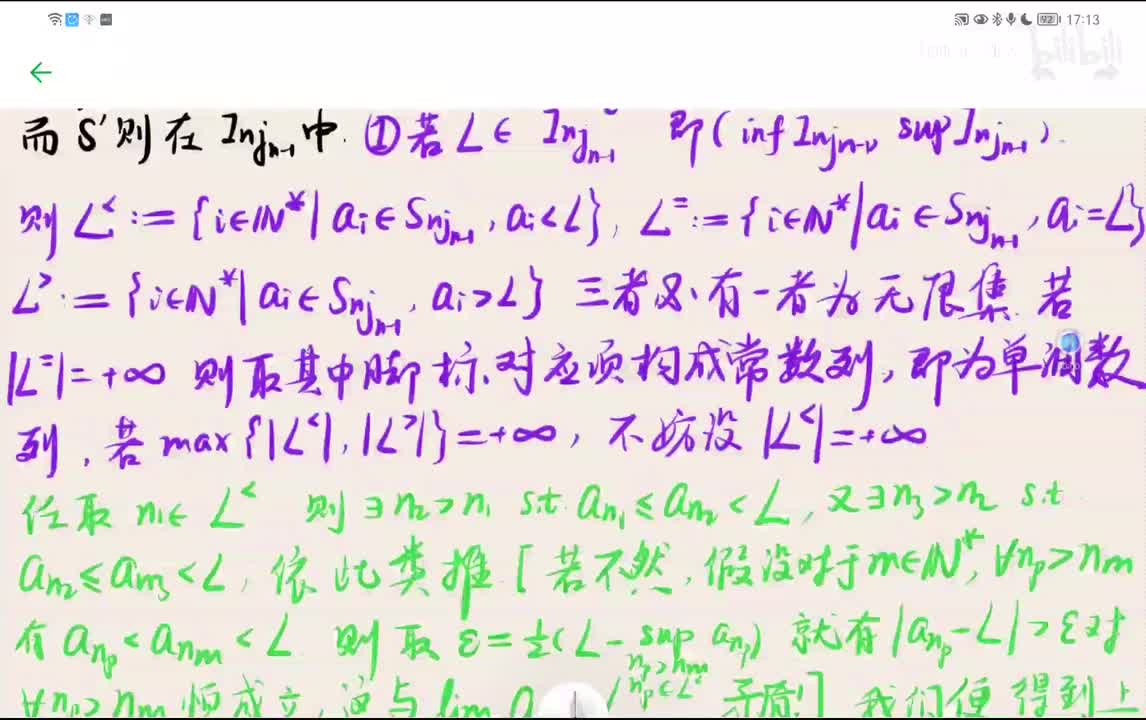 17:13
bilibili
而 S' 则在 Inj_{n-1} 中. ①若 L ∈ Inj_{n-1}° 即 ( inf Inj_{n-1}, sup Inj_{n-1} ).
则 L^< := {i∈ℕ*| a_i ∈ S_{nj_{n-1}}, a_i < L}, L^= := {i∈ℕ*| a_i ∈ S_{nj_{n-1}}, a_i = L}
L^> := {i∈ℕ*| a_i ∈ S_{nj_{n-1}}, a_i > L} 三者必有一者为无限集. 若
|L^=| = +∞ 则取其中脚标对应项构成常数列, 即为单调数
列. 若 max{|L^<|, |L^>|} = +∞, 不妨设 |L^<| = +∞
任取 n_1 ∈ L^< 则 ∃ n_2 > n_1 s.t. a_{n_1} ≤ a_{n_2} < L, 又 ∃ n_3 > n_2 s.t
a_{n_2} ≤ a_{n_3} < L, 依此类推 [若不然, 假设对于 m∈ℕ*, ∀n_p > n_m
有 a_{n_p} < a_{n_m} < L 则取 ε = ½(L - sup_{n_p>n_m, n_p∈L^<} a_{n_p}) 就有 |a_{n_p} - L| > ε 对
∀n_p > n_m 恒成立, 这与 lim a 矛盾!] 我们便得到上